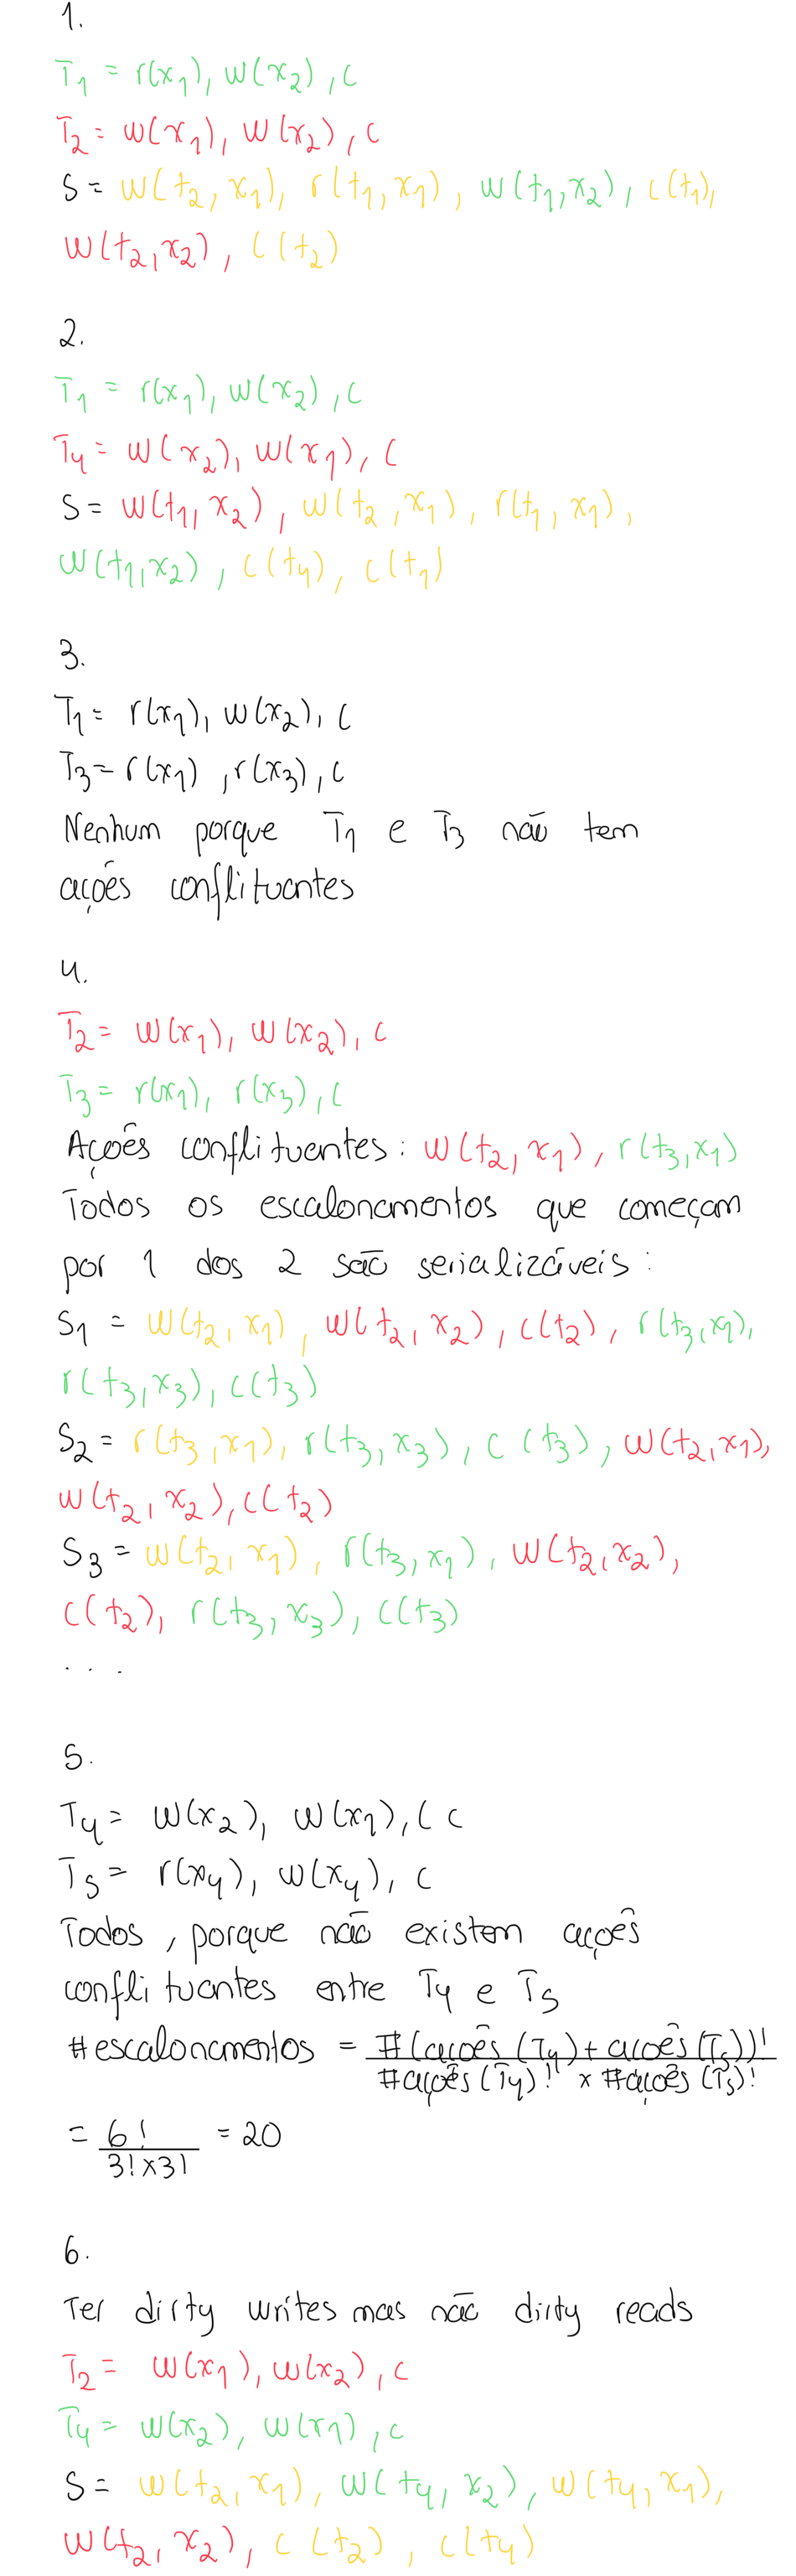 1.
T1 = r(x1), w(x2), c
T2 = w(x1), w(x2), c
S = w(t2, x1), r(t1, x1), w(t1, x2), c(t1),
w(t2, x2), c(t2)
2.
T1 = r(x1), w(x2), c
T4 = w(x2), w(x1), c
S = w(t1, x2), w(t2, x1), r(t1, x1),
w(t1, x2), c(t4), c(t1)
3.
T1 = r(x1), w(x2), c
T3 = r(x1), r(x3), c
Nenhum porque T1 e T3 não tem
ações conflituantes
4.
T2 = w(x1), w(x2), c
T3 = r(x1), r(x3), c
Ações conflituentes: w(t2, x1), r(t3, x1)
Todos os escalonamentos que começam
por 1 dos 2 são serializáveis:
S1 = w(t2, x1), w(t2, x2), c(t2), r(t3, x1),
r(t3, x3), c(t3)
S2 = r(t3, x1), r(t3, x3), c (t3), w(t2, x1),
w(t2, x2), c(t2)
S3 = w(t2, x1), r(t3, x1), w(t2, x2),
c(t2), r(t3, x3), c(t3)
...
5.
T4 = w(x2), w(x1), ( c
T5 = r(x4), w(x4), c
Todos, porque não existem ações
conflituantes entre T4 e T5
#escalonamentos = #(ações (T4) + ações (T5))!
#ações (T4)! x #ações (T5)!
= 6! = 20
3! x 3!
6.
Ter dirty writes mas não dirty reads
T2 = w(x1), w(x2), c
T4 = w(x2), w(x1), c
S = w(t2, x1), w(t4, x2), w(t4, x1),
w(t2, x2), c (t2), c(t4)